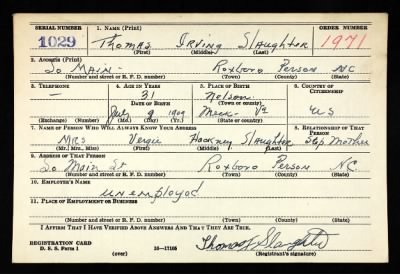 SERIAL NUMBER 1. NAME (Print) ORDER NUMBER
1029 Thomas Irving Slaughter 1971
(First) (Middle) (Last)
2. ADDRESS (Print)
So Main - Roxboro Person NC
(Number and street or R. F. D. number) (Town) (County) (State)
3. TELEPHONE 4. AGE IN YEARS 5. PLACE OF BIRTH 6. COUNTRY OF CITIZENSHIP
— 31 Nelson
DATE OF BIRTH
July 9 1909 Meck- Va US
(Exchange) (Number) (Mo.) (Day) (Yr.) (Town or county) (State or country)
7. NAME OF PERSON WHO WILL ALWAYS KNOW YOUR ADDRESS 8. RELATIONSHIP OF THAT PERSON
Mrs Vergie Hackney Slaughter Step Mother
(Mr., Mrs., Miss) (First) (Middle) (Last)
9. ADDRESS OF THAT PERSON
So Main St Roxboro Person NC.
(Number and street or R. F. D. number) (Town) (County) (State)
10. EMPLOYER'S NAME
unemployed
11. PLACE OF EMPLOYMENT OR BUSINESS
(Number and street or R. F. D. number) (Town) (County) (State)
I AFFIRM THAT I HAVE VERIFIED ABOVE ANSWERS AND THAT THEY ARE TRUE.
REGISTRATION CARD
D. S. S. Form 1 16—17105 Thomas I Slaughter
(over) (Registrant's signature)